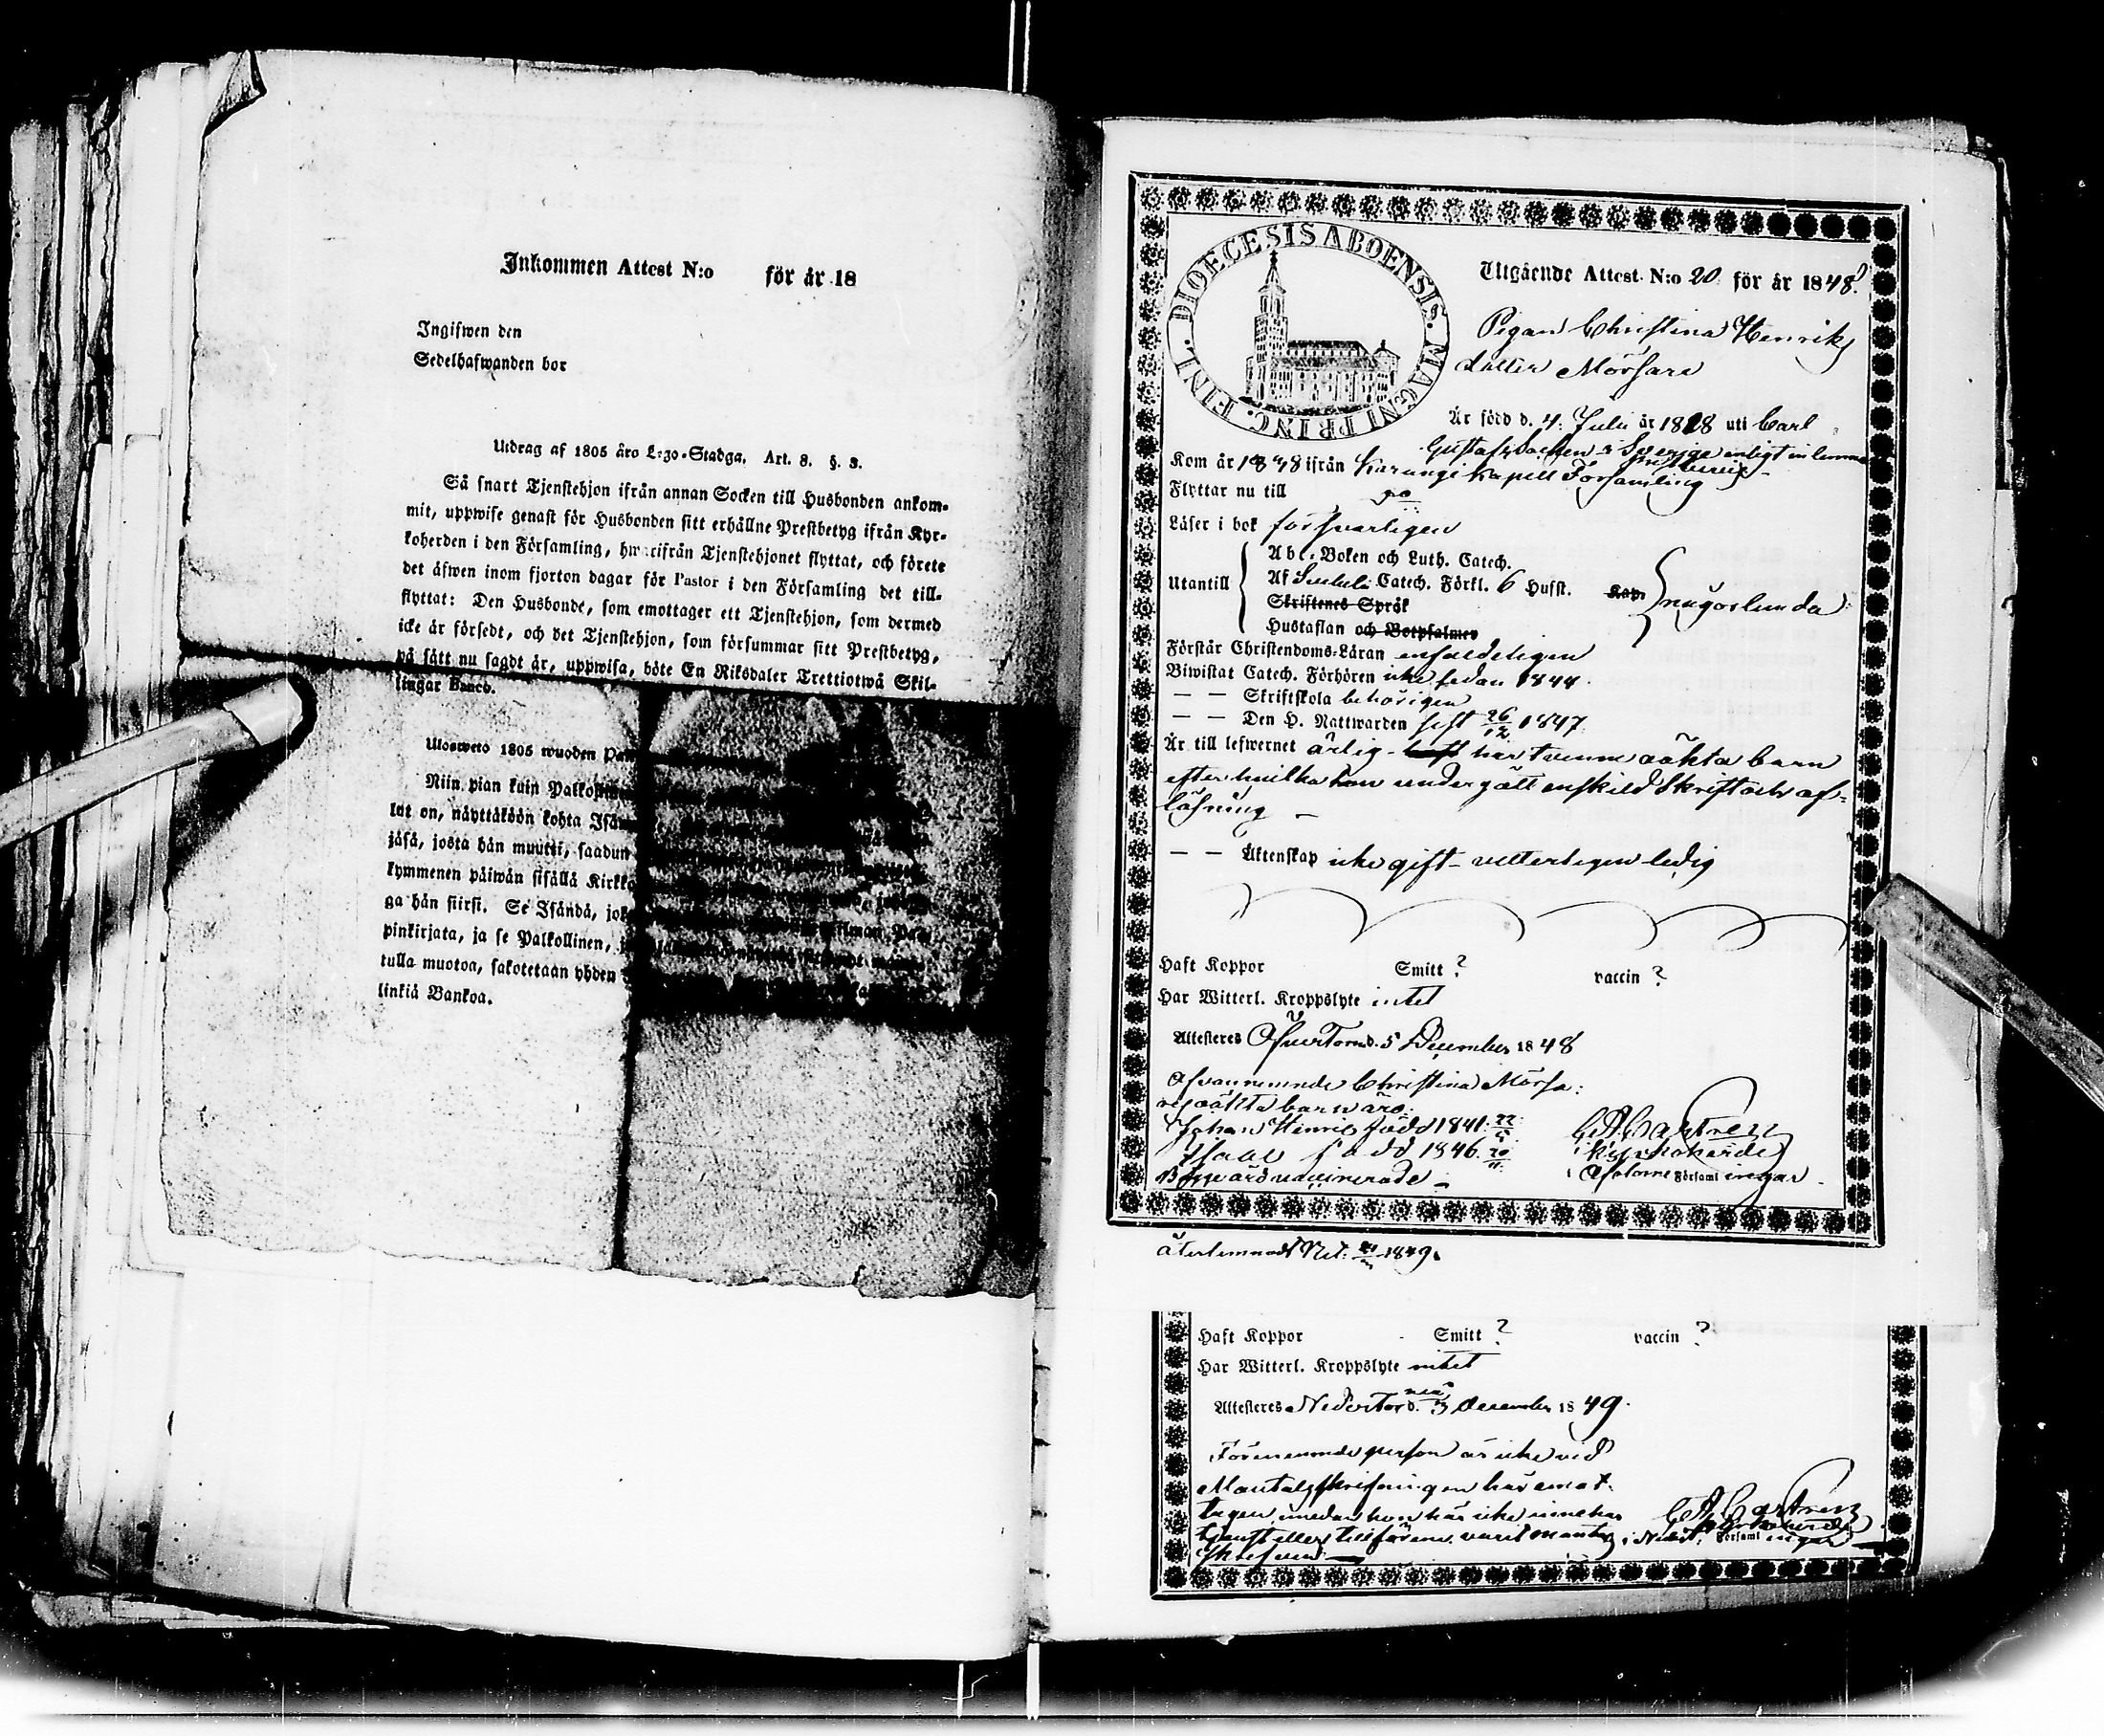 Inkommen Attest N:o för år 18
Ingifwen den
Sedelhafwanden bor
Utdrag af 1805 års Lego-Stadga. Art. 8. §. 3.
Så snart Tjenstehjon ifrån annan Socken till Husbonden ankom-
mit, uppwise genast för Husbonden sitt erhållne Prestbetyg ifrån Kyr-
koherden i den Församling, hwarifrån Tjenstehjonet flyttat, och förete
det äfwen inom fjorton dagar för Pastor i den Församling det till-
flyttat: Den Husbonde, som emottager ett Tjenstehjon, som dermed
icke är försedt, och det Tjenstehjon, som försummar sitt Prestbetyg,
på sätt nu sagdt är, uppwisa, böte En Riksdaler Trettiotwå Skil-
lingar Banco.
Ulosweto 1805 wuoden Pal
Niin pian kuin Palkollinen
lut on, näyttäköön kohta Isän
jäsä, josta hän muutti, saadun
kymmenen päiwän sisällä Kirkko
ga hän siirsi. Se Isändä, jok
pinkirjata, ja se Palkollinen, j
tulla muotoa, sakotetaan yhden
linkiä Bankoa.
DIOECESIS ABOENSIS. MAGNI PRINC. FINL.
Utgående Attest N:o 20 för år 1848.
Pigan Christina Henriks
dotter Mörsare
Är född d. 4. Juli år 1818 uti Carl
Gustafs Socken i Sverige enligt inlemnadt
Prestbevis
Kom år 1848 ifrån Karungi Kapell Församling
Flyttar nu till
Läser i bok försvarligen
Utantill
Abc-Boken och Luth. Catech.
Af Svebeli Catech. Förkl. 6 Hufst. Kap. någorlunda
Skriftenes Språk
Hustaflan och Botpsalmer
Förstår Christendoms-Läran enfaldeligen
Biwistat Catech. Förhören icke sedan 1844.
— — Skriftskola behörigen
— — Den H. Nattwarden sist 26/12 1847.
Är till lefwernet ärlig - haft har tvenne oäkta barn
efter hvilka hon undergått enskild skrift och af-
lösning —
— — Äktenskap icke gift - vetterligen ledig
Haft Koppor Smitt ? vaccin ?
Har Witterl. Kroppslyte intet
Attesteres ÖfverTorn d. 5 December 1848
Ofvannemnde Christina Mörsa-
res oäkta barn äro:
Johan Henric född 1841 22/
Isaac född 1846 20/11
Bägge äro vaccinerade —
C A Castren
Kyrkoherde
i Ofvantorne Församlingar.
återlemnadt Ned: 1849.
Haft Koppor Smitt ? vaccin ?
Har Witterl. Kroppslyte intet
Attesteres NederTor d. 3 december 1849.
Förenemnde person är icke vid
Mantalsskrifningen här emot-
tagen, medan hon här icke innehar
tjenst eller tillförene varit mantals
skrifven —
C A Castren
Kyrkoherde
i Nedert. Församlingar